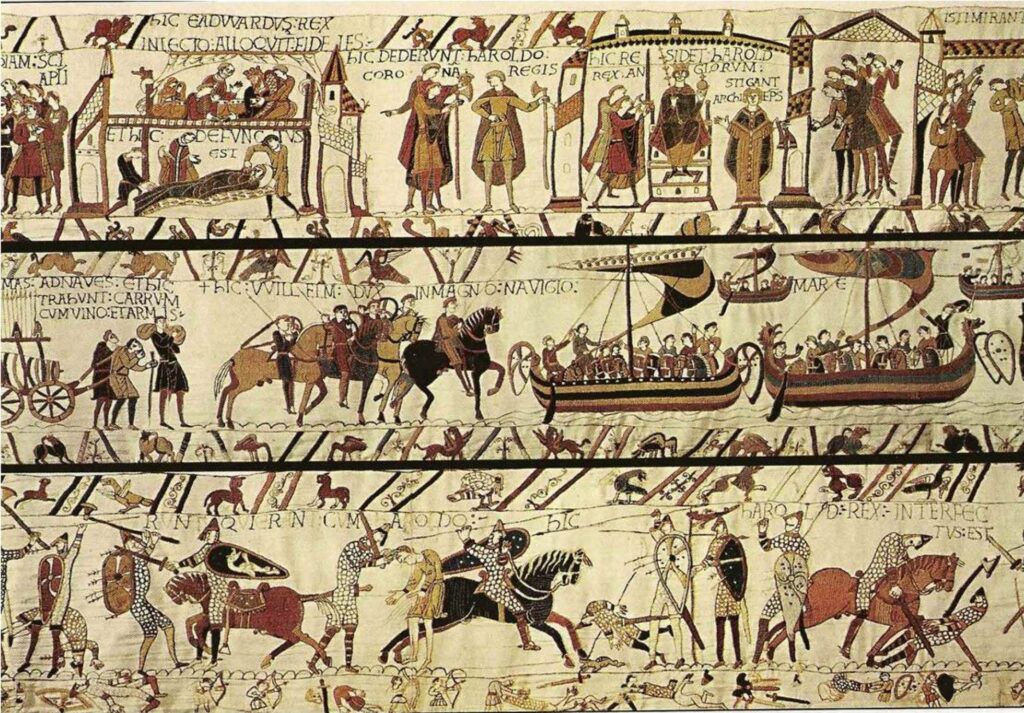 HIC EADVVARDVS: REX
IN LECTO: ALLOQVIT: FIDELES:
DIAM: SCI
APLI
ET HIC DEFVNCTVS
EST
HIC DEDERVNT: HAROLDO:
CORONA REGIS
HIC RE SIDET: HAROLD
REX: ANGLORVM:
STIGANT
ARCHIEPS
ISTI MIRANT
MAS: AD NAVES: ET HIC
TRAHVNT: CARRVM
CVM VINO: ET ARMIS:
+ HIC: VVILLELM: DVX IN MAGNO: NAVIGIO:
MARE
HIC
HAROLD: REX: INTERFEC
TVS: EST